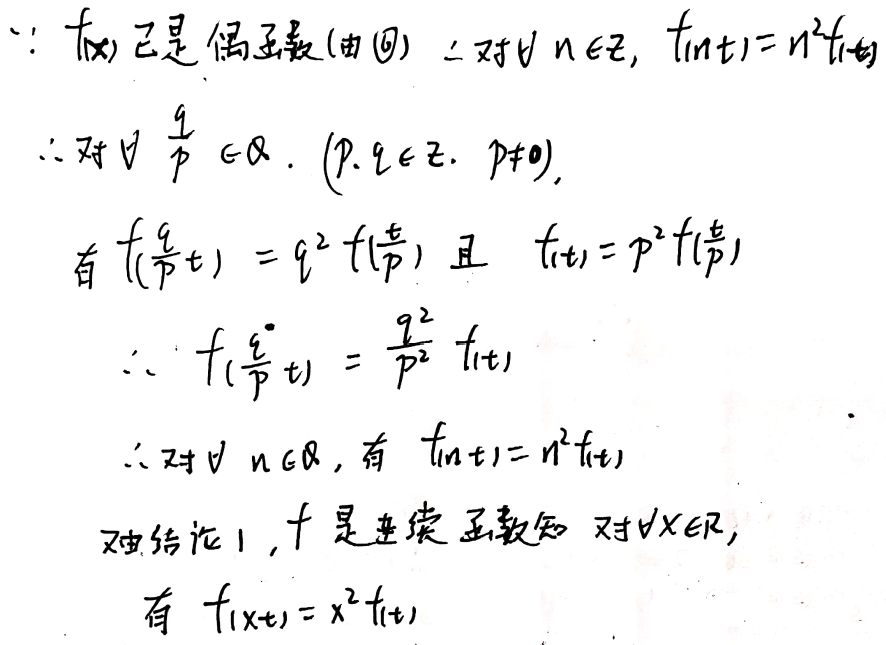 ∵ f(x)已是偶函数(由⑥) ∴对∀ n∈Z, f(nt)=n²f(t)
∴对∀ q/p ∈Q. (p.q∈Z. p≠0),
有 f(q/p t) = q² f(t/p) 且 f(t)=p² f(t/p)
∴ f(q/p t) = q²/p² f(t)
∴对∀ n∈Q, 有 f(nt)=n²f(t)
又由结论1, f是连续函数知 对∀x∈R,
有 f(xt)=x²f(t)